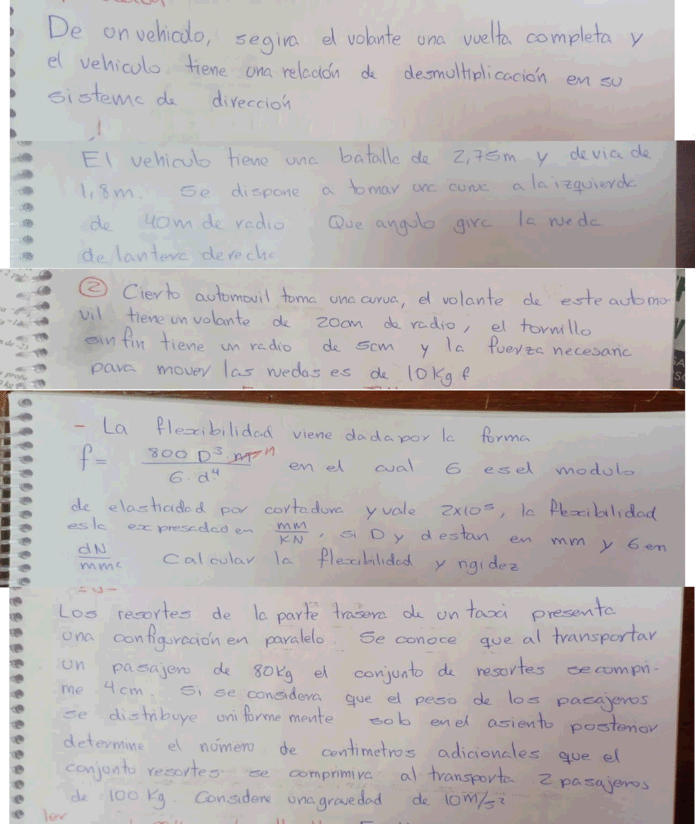 De un vehiculo, se gira el volante una vuelta completa y
el vehiculo tiene una relación de desmultiplicación en su
sistema de dirección
El vehiculo tiene una batalla de 2,75m y de via de
1,8m. Se dispone a tomar una curva a la izquierda
de 40m de radio Que angulo gira la rueda
delantera derecha
② Cierto automovil toma una curva, el volante de este automo
vil tiene un volante de 20cm de radio, el tornillo
sin fin tiene un radio de 5cm y la fuerza necesaria
para mover las ruedas es de 10Kg f
- La flexibilidad viene dada por la forma
f= 800 D³. n / G. d⁴ en el cual G es el modulo
de elasticidad por cortadura y vale 2x10⁵, la flexibilidad
es la expresada en mm/KN, si D y d estan en mm y G en
dN/mm² Calcular la flexibilidad y rigidez
Los resortes de la parte trasera de un taxi presenta
una configuración en paralelo. Se conoce que al transportar
un pasajero de 80Kg el conjunto de resortes se compri-
me 4cm. Si se considera que el peso de los pasajeros
se distribuye uniformemente solo en el asiento posterior
determine el número de centimetros adicionales que el
conjunto resortes se comprimira al transporta 2 pasajeros
de 100 Kg. Considere una gravedad de 10m/s²